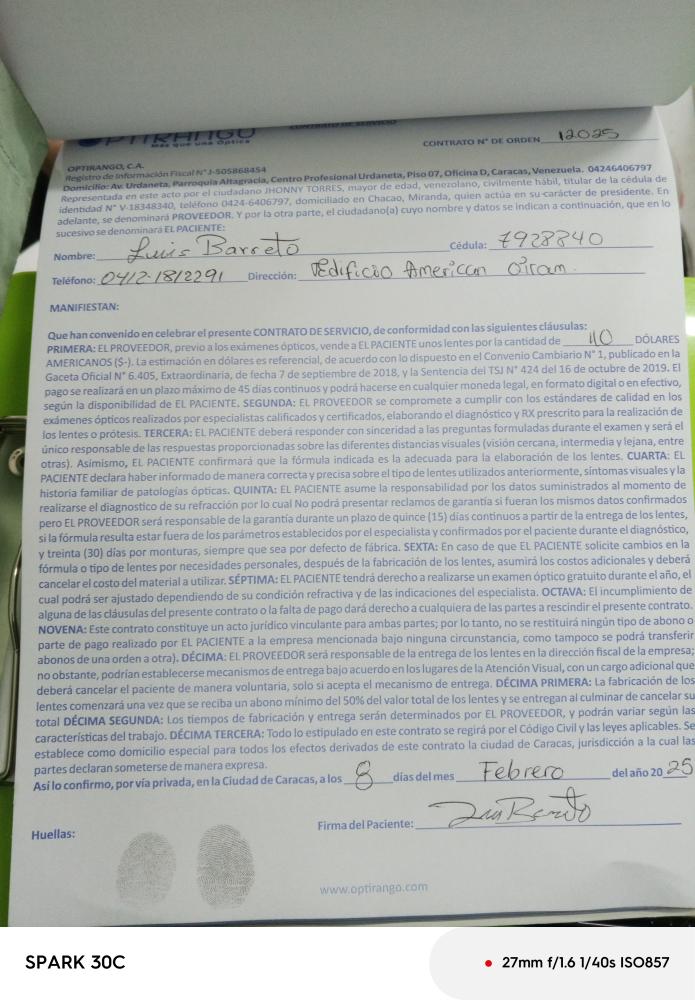 OPTIRANGO
Más que una Óptica
CONTRATO DE SERVICIO
CONTRATO N° DE ORDEN 12025
OPTIRANGO, C.A.
Registro de Información Fiscal N° J-505868454
Domicilio: Av. Urdaneta, Parroquia Altagracia, Centro Profesional Urdaneta, Piso 07, Oficina D, Caracas, Venezuela. 04246406797
Representada en este acto por el ciudadano JHONNY TORRES, mayor de edad, venezolano, civilmente hábil, titular de la cédula de
identidad N° V-18348340, teléfono 0424-6406797, domiciliado en Chacao, Miranda, quien actúa en su carácter de presidente. En
adelante, se denominará PROVEEDOR. Y por la otra parte, el ciudadano(a) cuyo nombre y datos se indican a continuación, que en lo
sucesivo se denominará EL PACIENTE:
Nombre: Luis Barreto Cédula: 7928840
Teléfono: 0412-1812291 Dirección: Edificio American
MANIFIESTAN:
Que han convenido en celebrar el presente CONTRATO DE SERVICIO, de conformidad con las siguientes cláusulas:
PRIMERA: EL PROVEEDOR, previo a los exámenes ópticos, vende a EL PACIENTE unos lentes por la cantidad de 110 DÓLARES
AMERICANOS ($-). La estimación en dólares es referencial, de acuerdo con lo dispuesto en el Convenio Cambiario N° 1, publicado en la
Gaceta Oficial N° 6.405, Extraordinaria, de fecha 7 de septiembre de 2018, y la Sentencia del TSJ N° 424 del 16 de octubre de 2019. El
pago se realizará en un plazo máximo de 45 días continuos y podrá hacerse en cualquier moneda legal, en formato digital o en efectivo,
según la disponibilidad de EL PACIENTE. SEGUNDA: EL PROVEEDOR se compromete a cumplir con los estándares de calidad en los
exámenes ópticos realizados por especialistas calificados y certificados, elaborando el diagnóstico y RX prescrito para la realización de
los lentes o prótesis. TERCERA: EL PACIENTE deberá responder con sinceridad a las preguntas formuladas durante el examen y será el
único responsable de las respuestas proporcionadas sobre las diferentes distancias visuales (visión cercana, intermedia y lejana, entre
otras). Asimismo, EL PACIENTE confirmará que la fórmula indicada es la adecuada para la elaboración de los lentes. CUARTA: EL
PACIENTE declara haber informado de manera correcta y precisa sobre el tipo de lentes utilizados anteriormente, síntomas visuales y la
historia familiar de patologías ópticas. QUINTA: EL PACIENTE asume la responsabilidad por los datos suministrados al momento de
realizarse el diagnostico de su refracción por lo cual No podrá presentar reclamos de garantía si fueran los mismos datos confirmados
pero EL PROVEEDOR será responsable de la garantía durante un plazo de quince (15) días continuos a partir de la entrega de los lentes,
si la fórmula resulta estar fuera de los parámetros establecidos por el especialista y confirmados por el paciente durante el diagnóstico,
y treinta (30) días por monturas, siempre que sea por defecto de fábrica. SEXTA: En caso de que EL PACIENTE solicite cambios en la
fórmula o tipo de lentes por necesidades personales, después de la fabricación de los lentes, asumirá los costos adicionales y deberá
cancelar el costo del material a utilizar. SÉPTIMA: EL PACIENTE tendrá derecho a realizarse un examen óptico gratuito durante el año, el
cual podrá ser ajustado dependiendo de su condición refractiva y de las indicaciones del especialista. OCTAVA: El incumplimiento de
alguna de las cláusulas del presente contrato o la falta de pago dará derecho a cualquiera de las partes a rescindir el presente contrato.
NOVENA: Este contrato constituye un acto jurídico vinculante para ambas partes; por lo tanto, no se restituirá ningún tipo de abono o
parte de pago realizado por EL PACIENTE a la empresa mencionada bajo ninguna circunstancia, como tampoco se podrá transferir
abonos de una orden a otra). DÉCIMA: EL PROVEEDOR será responsable de la entrega de los lentes en la dirección fiscal de la empresa;
no obstante, podrían establecerse mecanismos de entrega bajo acuerdo en los lugares de la Atención Visual, con un cargo adicional que
deberá cancelar el paciente de manera voluntaria, solo si acepta el mecanismo de entrega. DÉCIMA PRIMERA: La fabricación de los
lentes comenzará una vez que se reciba un abono mínimo del 50% del valor total de los lentes y se entregan al culminar de cancelar su
total DÉCIMA SEGUNDA: Los tiempos de fabricación y entrega serán determinados por EL PROVEEDOR, y podrán variar según las
características del trabajo. DÉCIMA TERCERA: Todo lo estipulado en este contrato se regirá por el Código Civil y las leyes aplicables. Se
establece como domicilio especial para todos los efectos derivados de este contrato la ciudad de Caracas, jurisdicción a la cual las
partes declaran someterse de manera expresa.
Así lo confirmo, por vía privada, en la Ciudad de Caracas, a los 8 días del mes Febrero del año 2025
Huellas:
Firma del Paciente: Luis Barreto
www.optirango.com
SPARK 30C
27mm f/1.6 1/40s ISO857